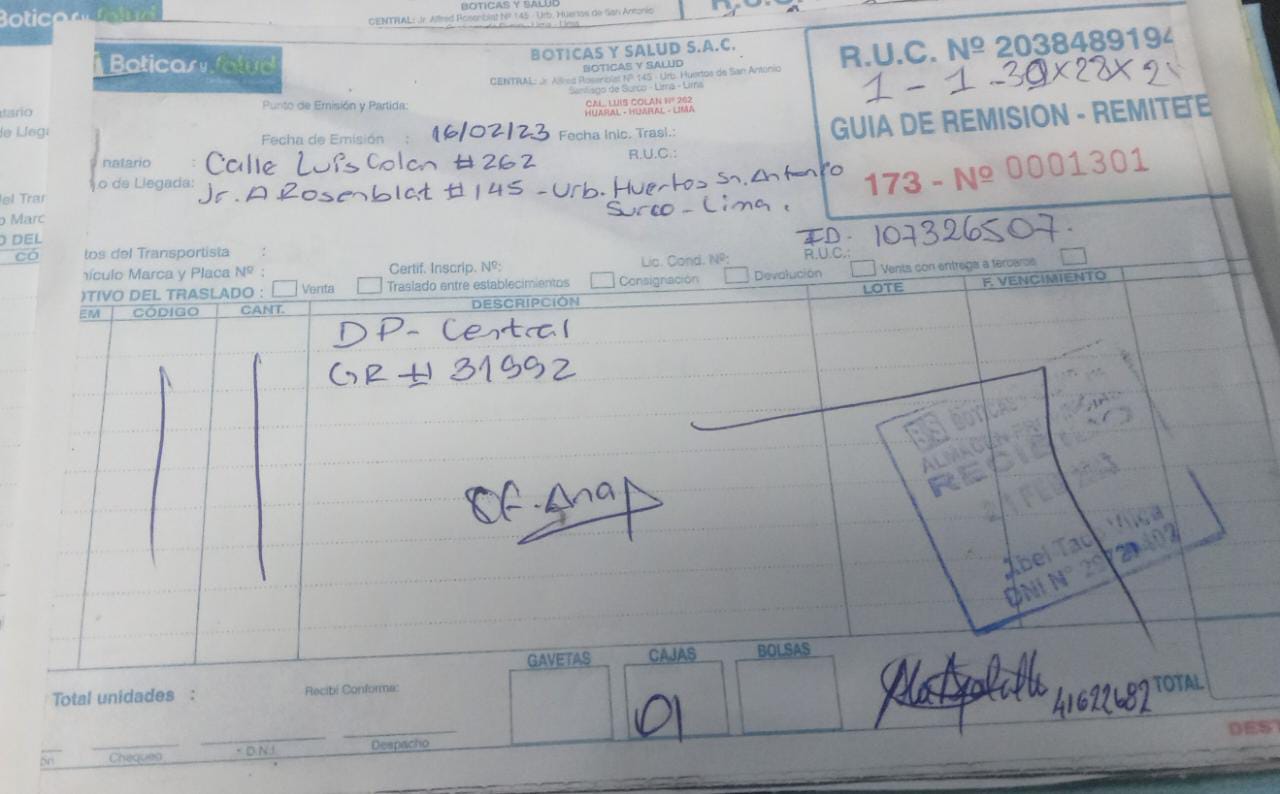 BOTICAS Y SALUD
CENTRAL: Jr. Alfred Rosenblat Nº 145 - Urb. Huertos de San Antonio
Boticas y Salud
BOTICAS Y SALUD S.A.C.
BOTICAS Y SALUD
CENTRAL: Jr. Alfred Rosenblat Nº 145 - Urb. Huertos de San Antonio
Santiago de Surco - Lima - Lima
CAL. LUIS COLAN Nº 262
HUARAL - HUARAL - LIMA
R.U.C. Nº 2038489194
1 - 1 - 30x28x2
GUIA DE REMISION - REMITETE
173 - Nº 0001301
Punto de Emisión y Partida:
Fecha de Emisión : 16/02/23 Fecha Inic. Trasl.:
natario : Calle Luis Colan # 262 R.U.C.:
o de Llegada: Jr. A Rosenblat # 145 - Urb. Huertos Sn. Antonio
Surco - Lima.
ID - 107326507.
tos del Transportista :
R.U.C.:
hículo Marca y Placa Nº : Certif. Inscrip. Nº: Lic. Cond. Nº:
OTIVO DEL TRASLADO : Venta Traslado entre establecimientos Consignación Devolución Venta con entrega a terceros
EM CÓDIGO CANT. DESCRIPCIÓN LOTE F. VENCIMIENTO
DP - Central
GR # 31992
BOTICAS
RECIBIDO
FEB
DNI Nº
GAVETAS CAJAS BOLSAS
01
Total unidades : Recibí Conforme:
41622682 TOTAL
Chequeo D.N.I. Despacho
DEST